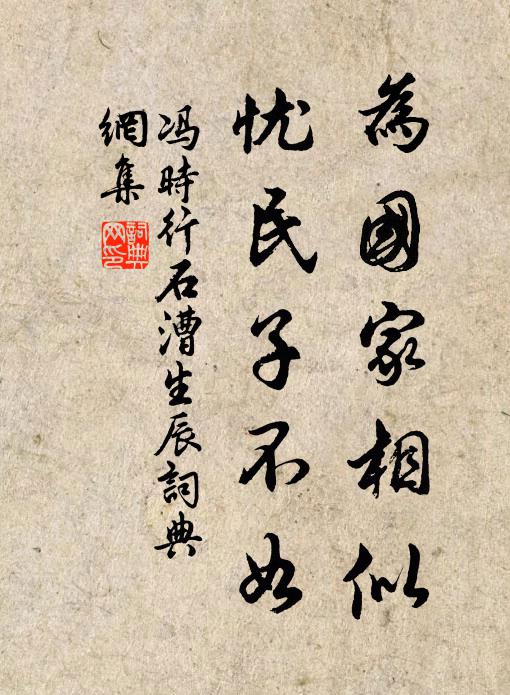 為國家相似
忧民子不如
冯時行石漕生辰詞典
網集
詞典
网印